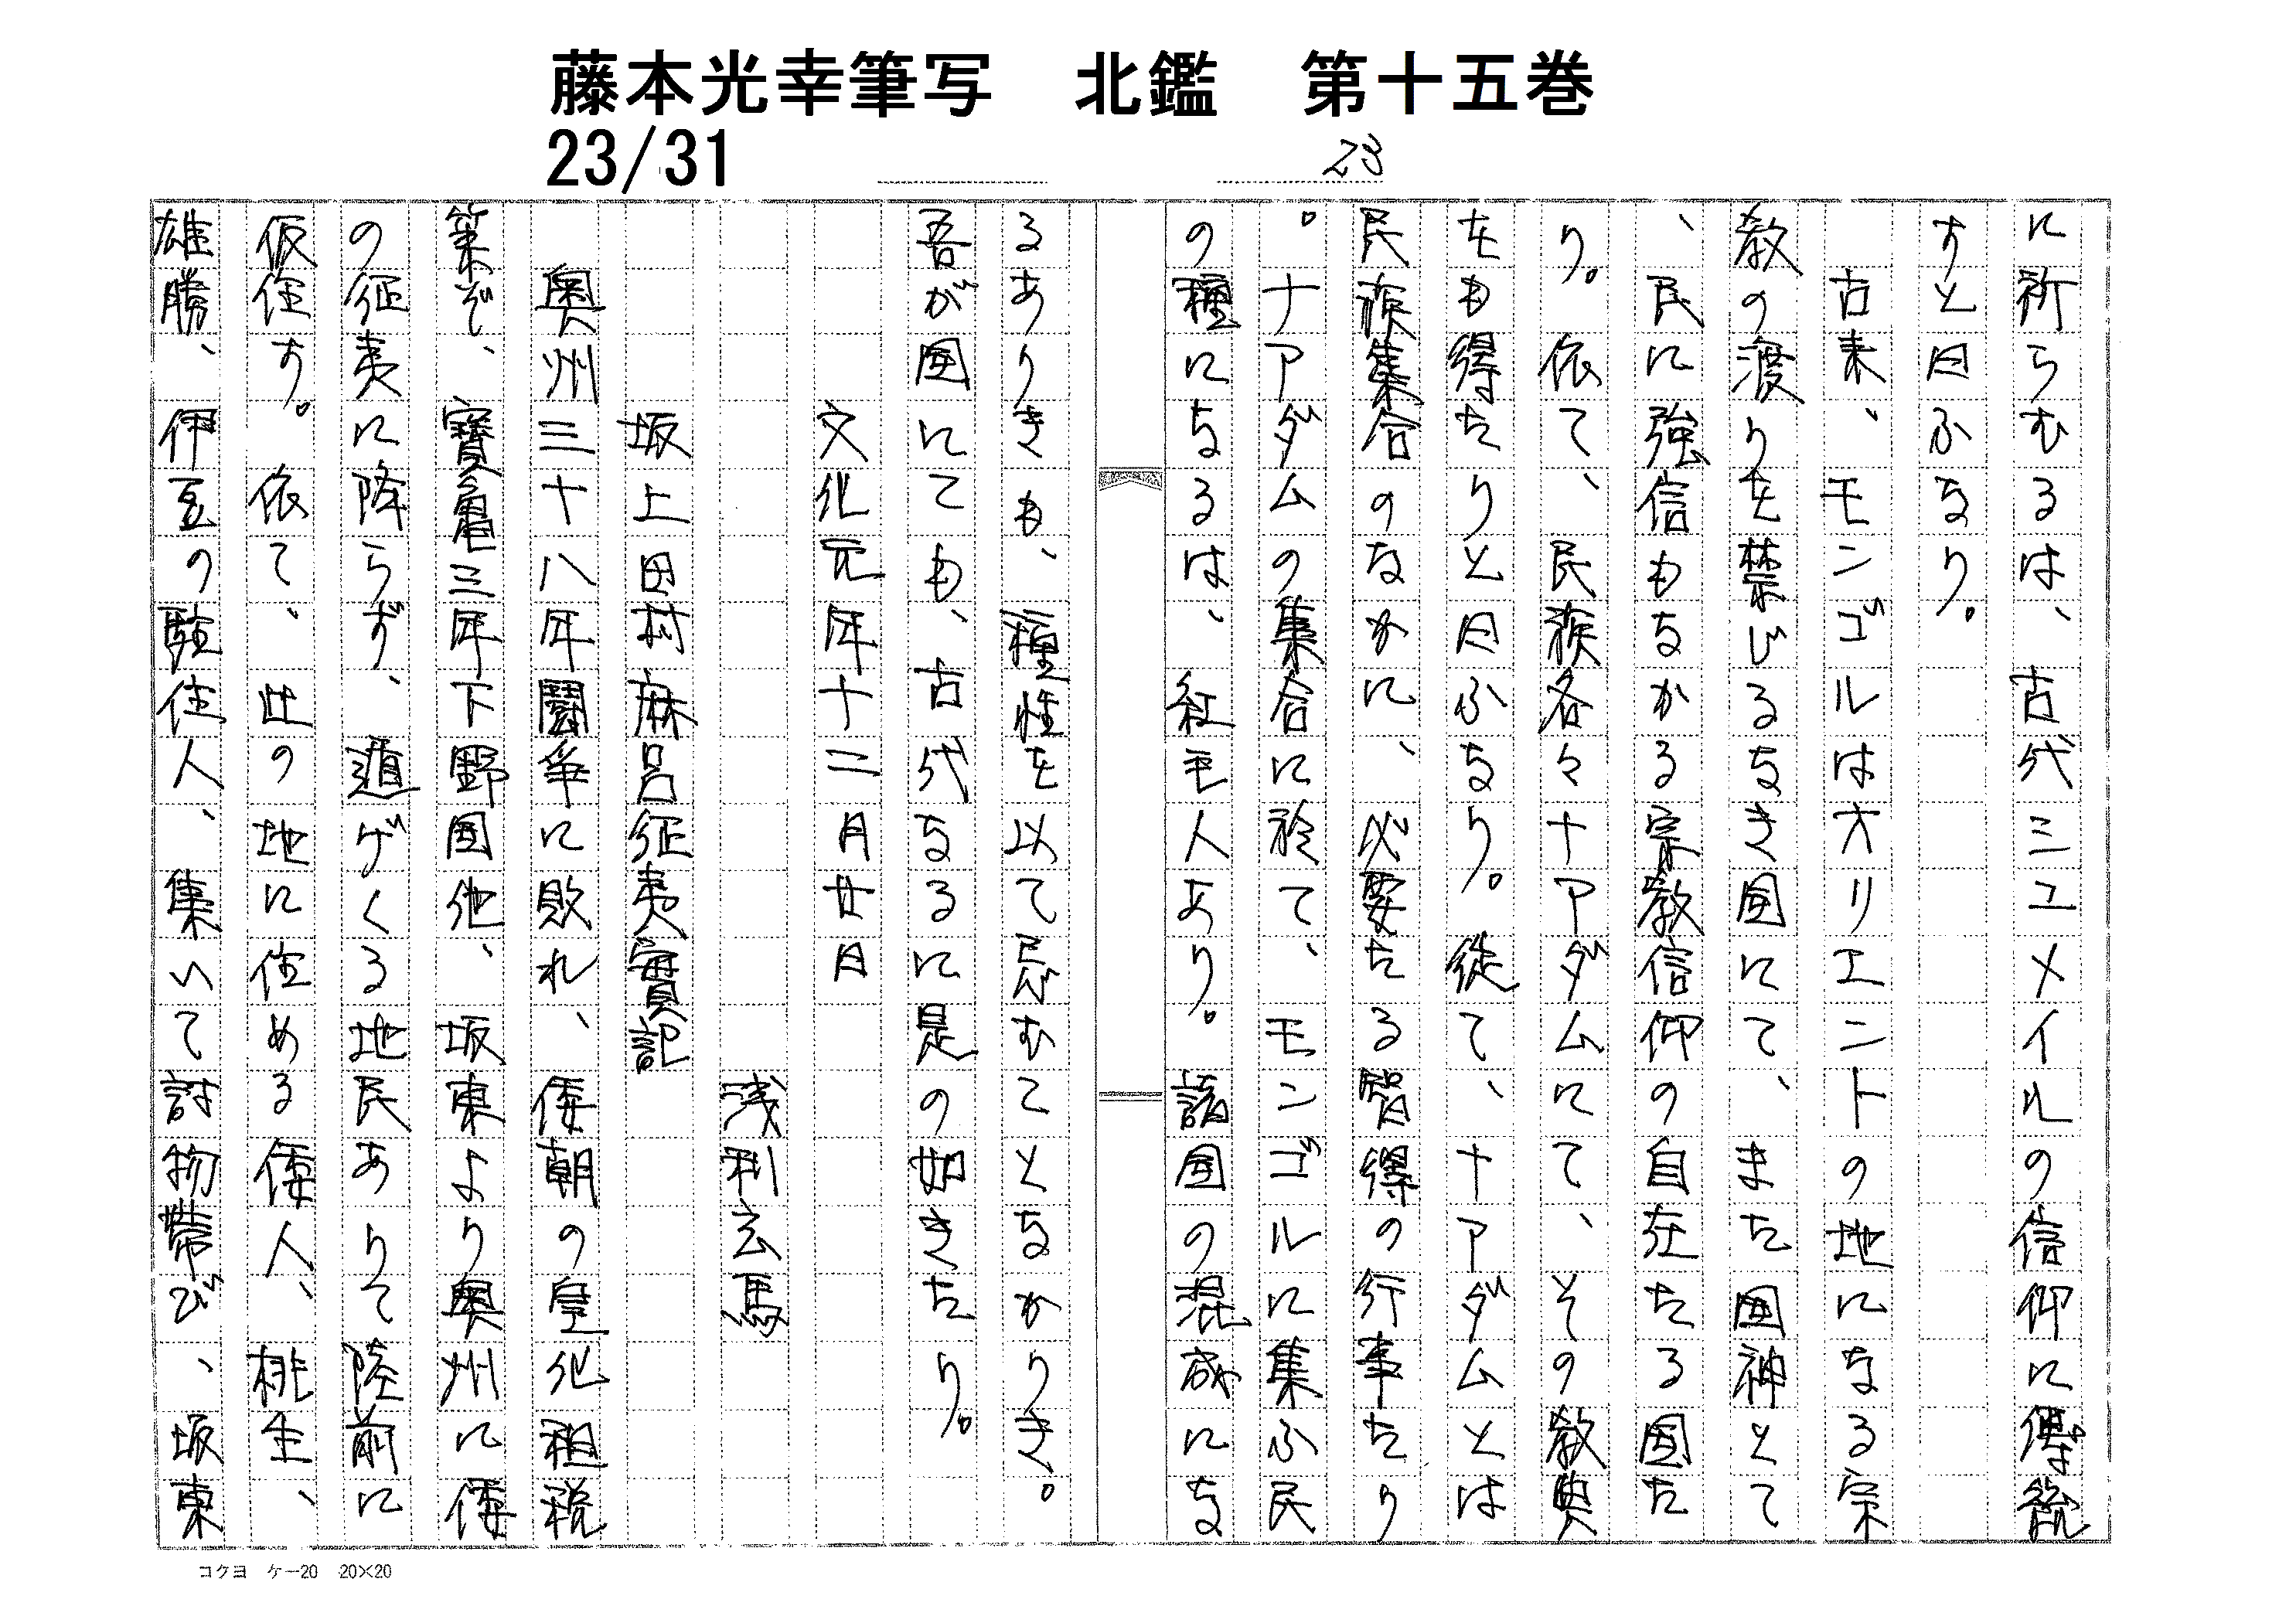 藤本光幸筆写　北鑑　第十五巻
23/31
23
に祈らむるは、古代シュメイルの信仰に傳統
すと曰ふなり。
古来、モンゴルはオリエントの地になる宗
教の渡りを禁じるなき国にて、また国神とて
、民に強信もなかる宗教信仰の自在たる国た
り。依て、民族各々ナアダムにて、その教典
をも得たりと曰ふなり。従て、ナアダムとは
民族集合のなかに、必要たる智得の行事たり
。ナアダムの集合に於て、モンゴルに集ふ民
の種になるは、紅毛人あり。諸国の混成にな
るありきも、種性を以て忌むことなかりき。
吾が国にても、古代なるに是の如きたり。
文化元年十二月廿日
浅利玄馬
坂上田村麻呂征夷實記
奥州三十八年闘争に敗れ、倭朝の皇化租税
策ぞ、寶亀三年下野国他、坂東より奥州に倭
の征夷に降らず、遁げくる地民ありて陸前に
仮住す。依て、此の地に住める倭人、桃生、
雄勝、伊豆の駿住人、集いて討物帯び、坂東
コクヨ　ケー20　20×20